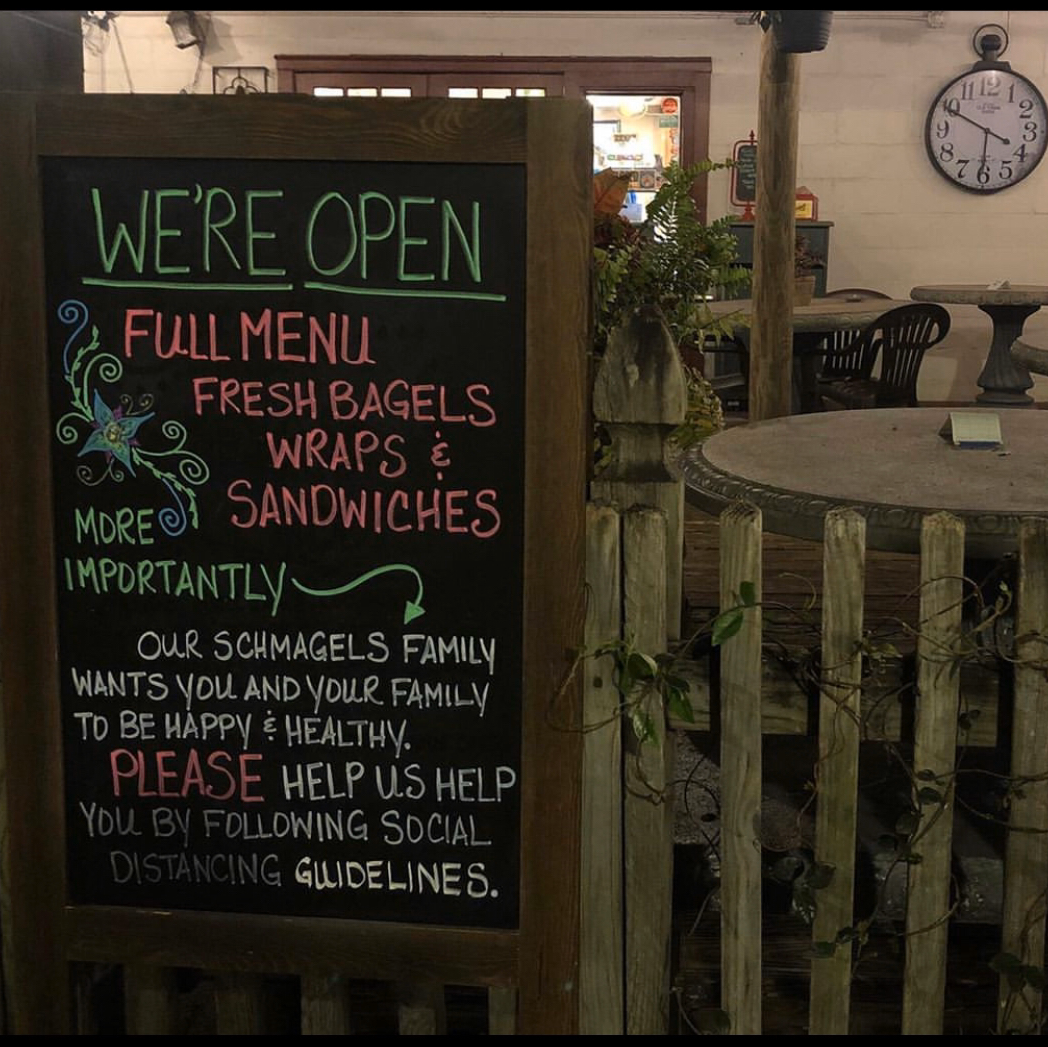 WE'RE OPEN
FULL MENU
FRESH BAGELS
WRAPS &
SANDWICHES
MORE
IMPORTANTLY
OUR SCHMAGELS FAMILY
WANTS YOU AND YOUR FAMILY
TO BE HAPPY & HEALTHY.
PLEASE HELP US HELP
YOU BY FOLLOWING SOCIAL
DISTANCING GUIDELINES.
12 1 2 3 4 5 6 7 8 9 10 11